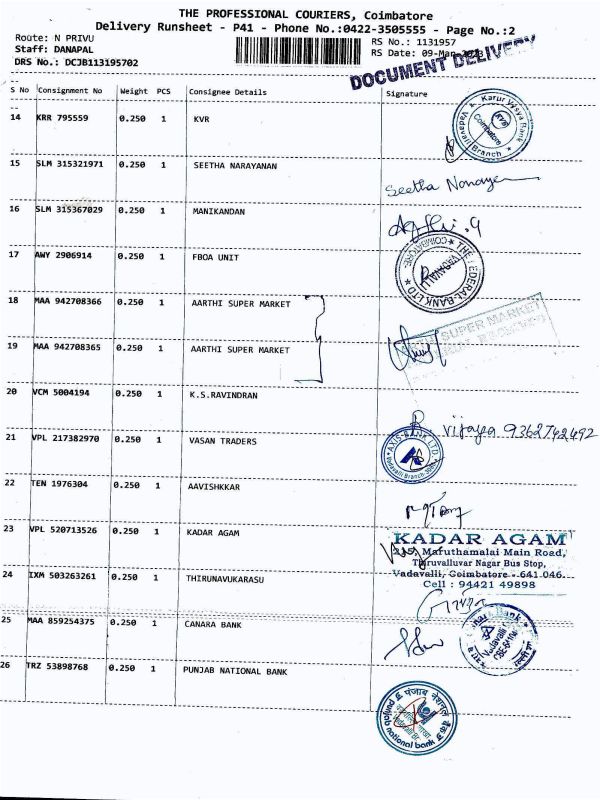 THE PROFESSIONAL COURIERS, Coimbatore
Delivery Runsheet - P41 - Phone No.:0422-3505555 - Page No.:2
Route: N PRIVU
RS No.: 1131957
Staff: DANAPAL
RS Date: 09-Mar-2023
DRS No.: DCJB113195702
DOCUMENT DELIVERY
S No Consignment No Weight PCS Consignee Details Signature
14 KRR 795559 0.250 1 KVR
Karur Vysya Bank
KVB
Coimbatore
Vadavalli Branch
15 SLM 315321971 0.250 1 SEETHA NARAYANAN
Seetha
16 SLM 315367029 0.250 1 MANIKANDAN
17 AWY 2906914 0.250 1 FBOA UNIT
THE FEDERAL BANK LTD
VADAVALLI
18 MAA 942708366 0.250 1 AARTHI SUPER MARKET
SUPER MARKET
19 MAA 942708365 0.250 1 AARTHI SUPER MARKET
20 VCM 5004194 0.250 1 K.S.RAVINDRAN
vijaya 9362742492
21 VPL 217382970 0.250 1 VASAN TRADERS
AXIS BANK LTD.
Vadavalli Branch
22 TEN 1976304 0.250 1 AAVISHKKAR
23 VPL 520713526 0.250 1 KADAR AGAM
KADAR AGAM
Maruthamalai Main Road,
Thiruvalluvar Nagar Bus Stop,
Vadavalli, Coimbatore - 641 046.
Cell : 94421 49898
24 IXM 503263261 0.250 1 THIRUNAVUKARASU
25 MAA 859254375 0.250 1 CANARA BANK
Bank
Vadavalli
26 TRZ 53898768 0.250 1 PUNJAB NATIONAL BANK
पंजाब नैशनल बैंक
punjab national bank